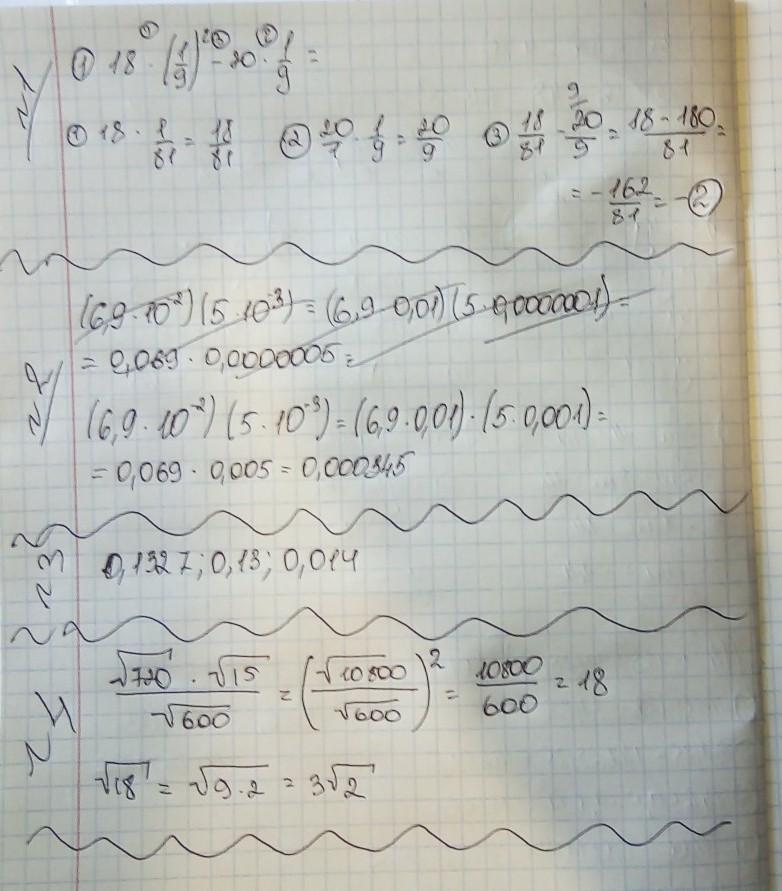 N1
① 18 · (1/9)² - 20 · 1/9 =
① 18 · 1/81 = 18/81 ② 20/1 · 1/9 = 20/9 ③ 18/81 - 20/9 = 18 - 180/81 =
= - 162/81 = - 2
N2
(6,9 · 10⁻²)(5 · 10⁻³) = (6,9 · 0,01)(5 · 0,0000001) =
= 0,069 · 0,0000005 =
(6,9 · 10⁻²) (5 · 10⁻³) = (6,9 · 0,01) · (5 · 0,001) =
= 0,069 · 0,005 = 0,000345
N3
0,1327; 0,13; 0,014
N4
√720 · √15 / √600 = (√10800 / √600)² = 10800/600 = 18
√18 = √9·2 = 3√2